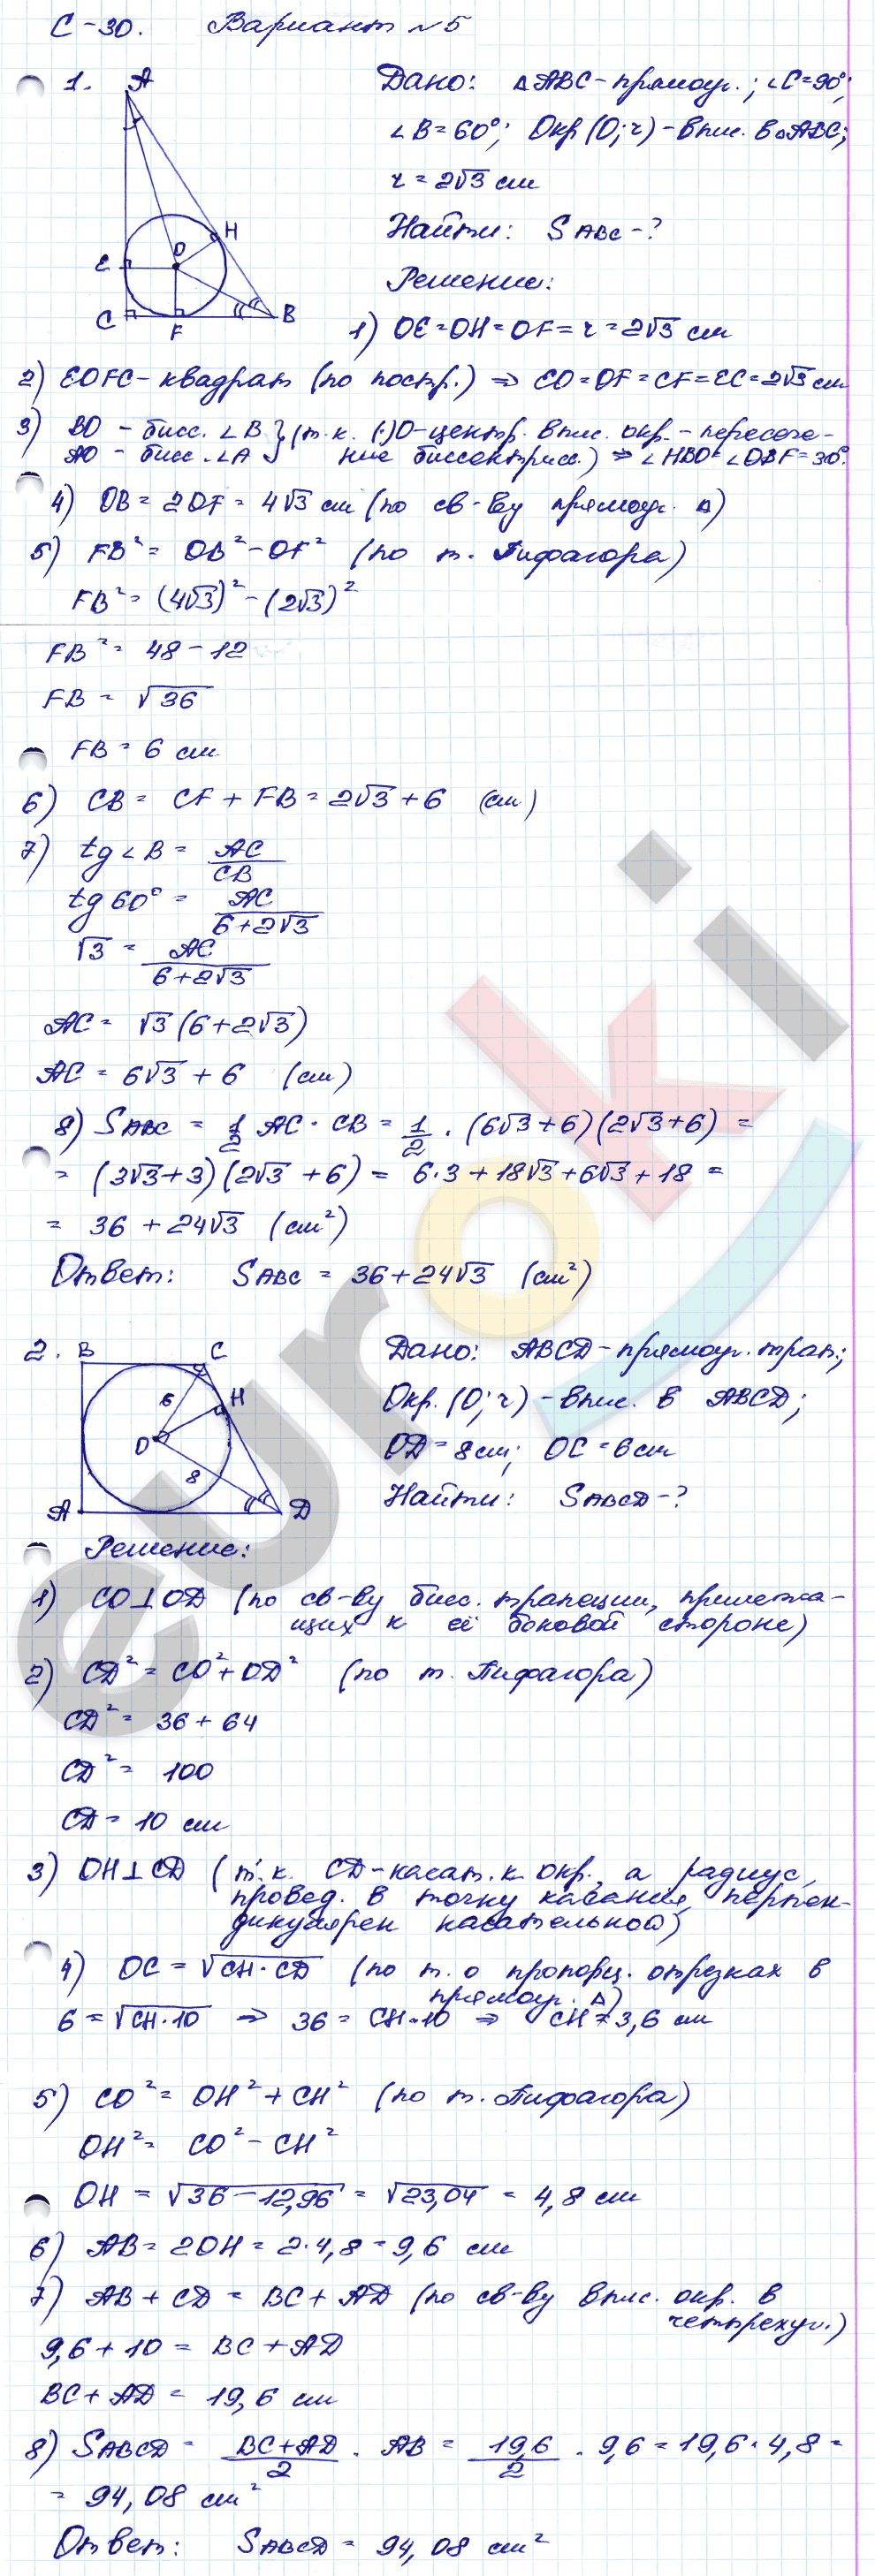 С-30. Вариант №5
1.
A
E
O
H
C
F
B
Дано: △ABC-прямоуг.; ∠C=90°;
∠B=60°; Окр(O;r)-впис. в △ABC;
r=2√3 см
Найти: S ABC-?
Решение:
1) OE=OH=OF=r=2√3 см
2) EOFC-квадрат (по постр.) ⇒ EO=OF=CF=EC=2√3 см
3) BO - бисс. ∠B } (т.к. (·)O-центр. впис. окр.-пересече-
AO - бисс. ∠A } ние биссектрисс.) ⇒ ∠HBO=∠OBF=30°.
4) OB=2OF=4√3 см (по св-ву прямоуг. △)
5) FB²=OB²-OF² (по т. Пифагора)
FB²=(4√3)²-(2√3)²
FB²=48-12
FB=√36
FB=6 см
6) CB=CF+FB=2√3+6 (см)
7) tg∠B=AC/CB
tg60°=AC/(6+2√3)
√3=AC/(6+2√3)
AC=√3(6+2√3)
AC=6√3+6 (см)
8) SABC=1/2 AC·CB=1/2·(6√3+6)(2√3+6)=
=(3√3+3)(2√3+6)=6·3+18√3+6√3+18=
=36+24√3 (см²)
Ответ: SABC=36+24√3 (см²)
2.
B
C
6
H
O
8
A
D
Дано: ABCD-прямоуг. трап.;
Окр.(O;r)-впис. в ABCD;
OD=8см; OC=6см
Найти: SABCD-?
Решение:
1) CO⊥OD (по св-ву бисс. трапеции, прилежа-
щих к её боковой стороне)
2) CD²=CO²+OD² (по т. Пифагора)
CD²=36+64
CD²=100
CD=10 см
3) OH⊥CD (т.к. CD-касат. к окр., а радиус,
провед. в точку касания, перпен-
дикулярен касательной)
4) OC=√(CH·CD) (по т. о пропорц. отрезках в
прямоуг. △)
6=√(CH·10) ⇒ 36=CH·10 ⇒ CH=3,6 см
5) CO²=OH²+CH² (по т. Пифагора)
OH²=CO²-CH²
OH=√(36-12,96)=√23,04=4,8 см
6) AB=2OH=2·4,8=9,6 см
7) AB+CD=BC+AD (по св-ву впис. окр. в
четырехуг.)
9,6+10=BC+AD
BC+AD=19,6 см
8) SABCD=(BC+AD)/2·AB=19,6/2·9,6=19,6·4,8=
=94,08 см²
Ответ: SABCD=94,08 см²
euroki